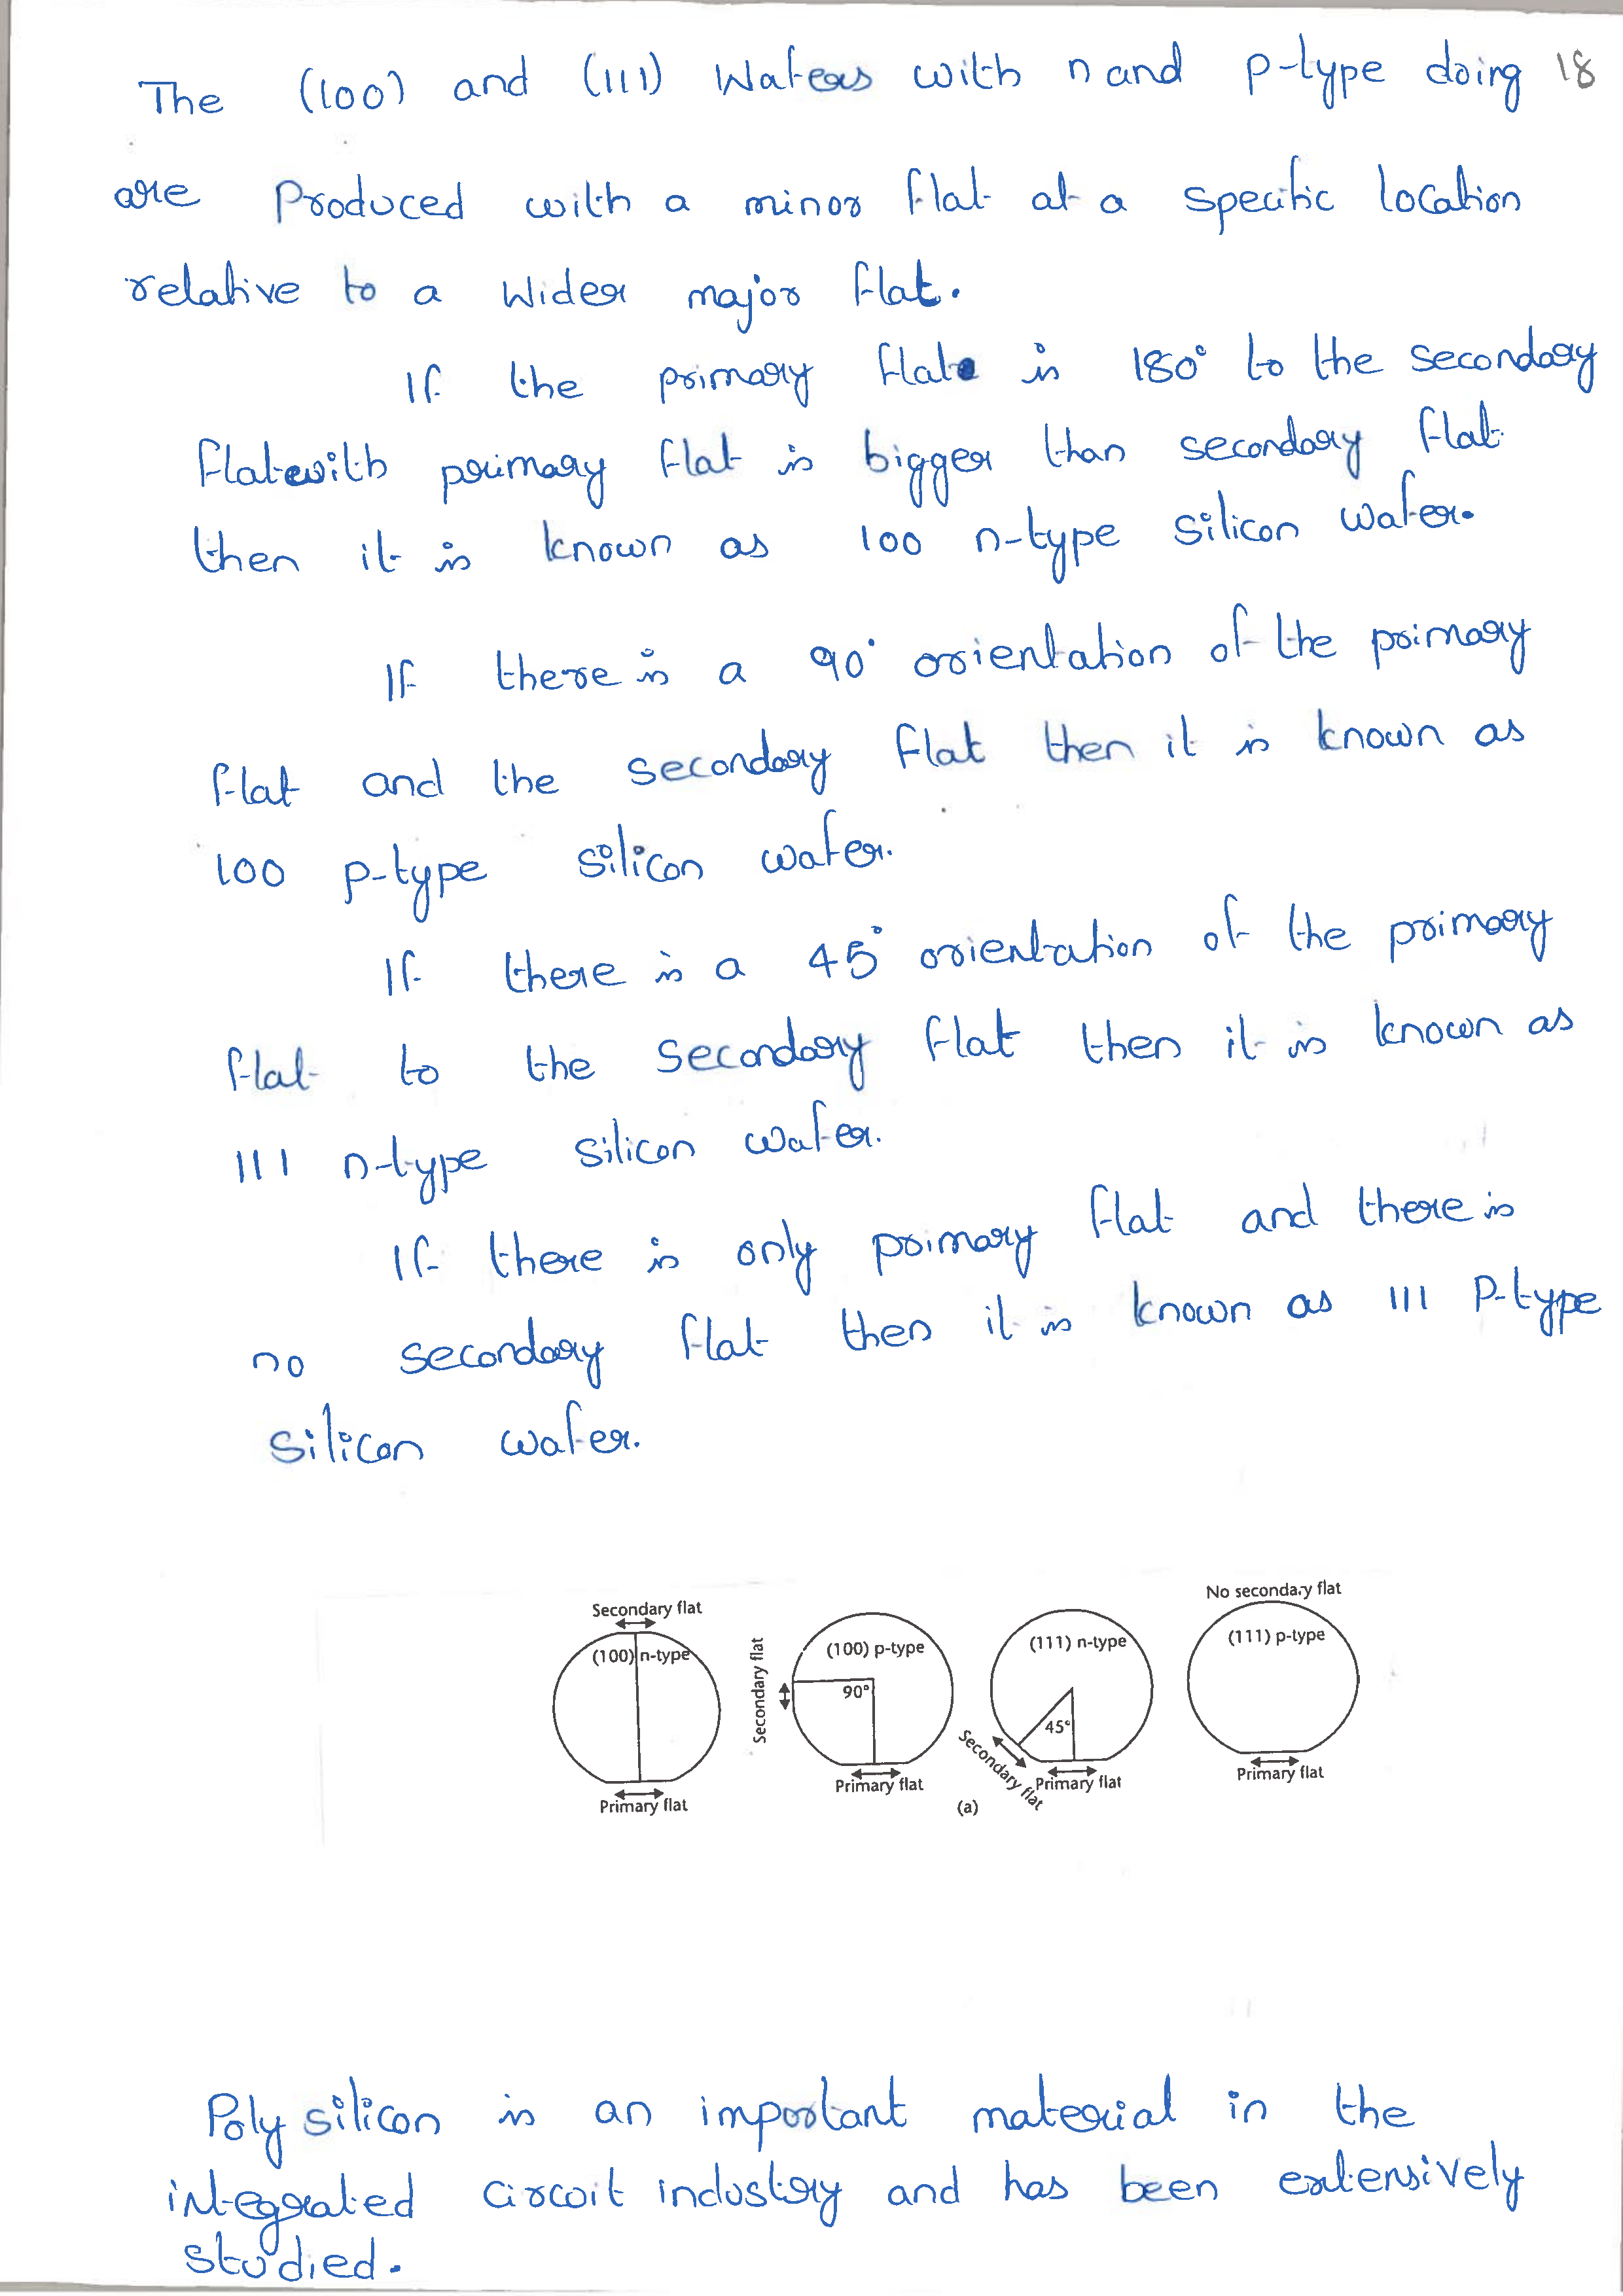 The (100) and (111) Wafers with n and p-type doing 18
are Produced with a minor flat at a specific location
relative to a wider major flat.
If the primary flat is 180° to the secondary
flat with primary flat is bigger than secondary flat
then it is known as 100 n-type silicon wafer.
If there is a 90° orientation of the primary
flat and the secondary flat then it is known as
100 p-type silicon wafer.
If there is a 45° orientation of the primary
flat to the secondary flat then it is known as
111 n-type silicon wafer.
If there is only primary flat and there is
no secondary flat then it is known as 111 P-type
silicon wafer.
Secondary flat
(100) n-type
Primary flat
Secondary flat
(100) p-type
90°
Primary flat
(111) n-type
45°
Secondary flat
Primary flat
No secondary flat
(111) p-type
Primary flat
(a)
Poly silicon is an important material in the
integrated circuit industry and has been extensively
studied.